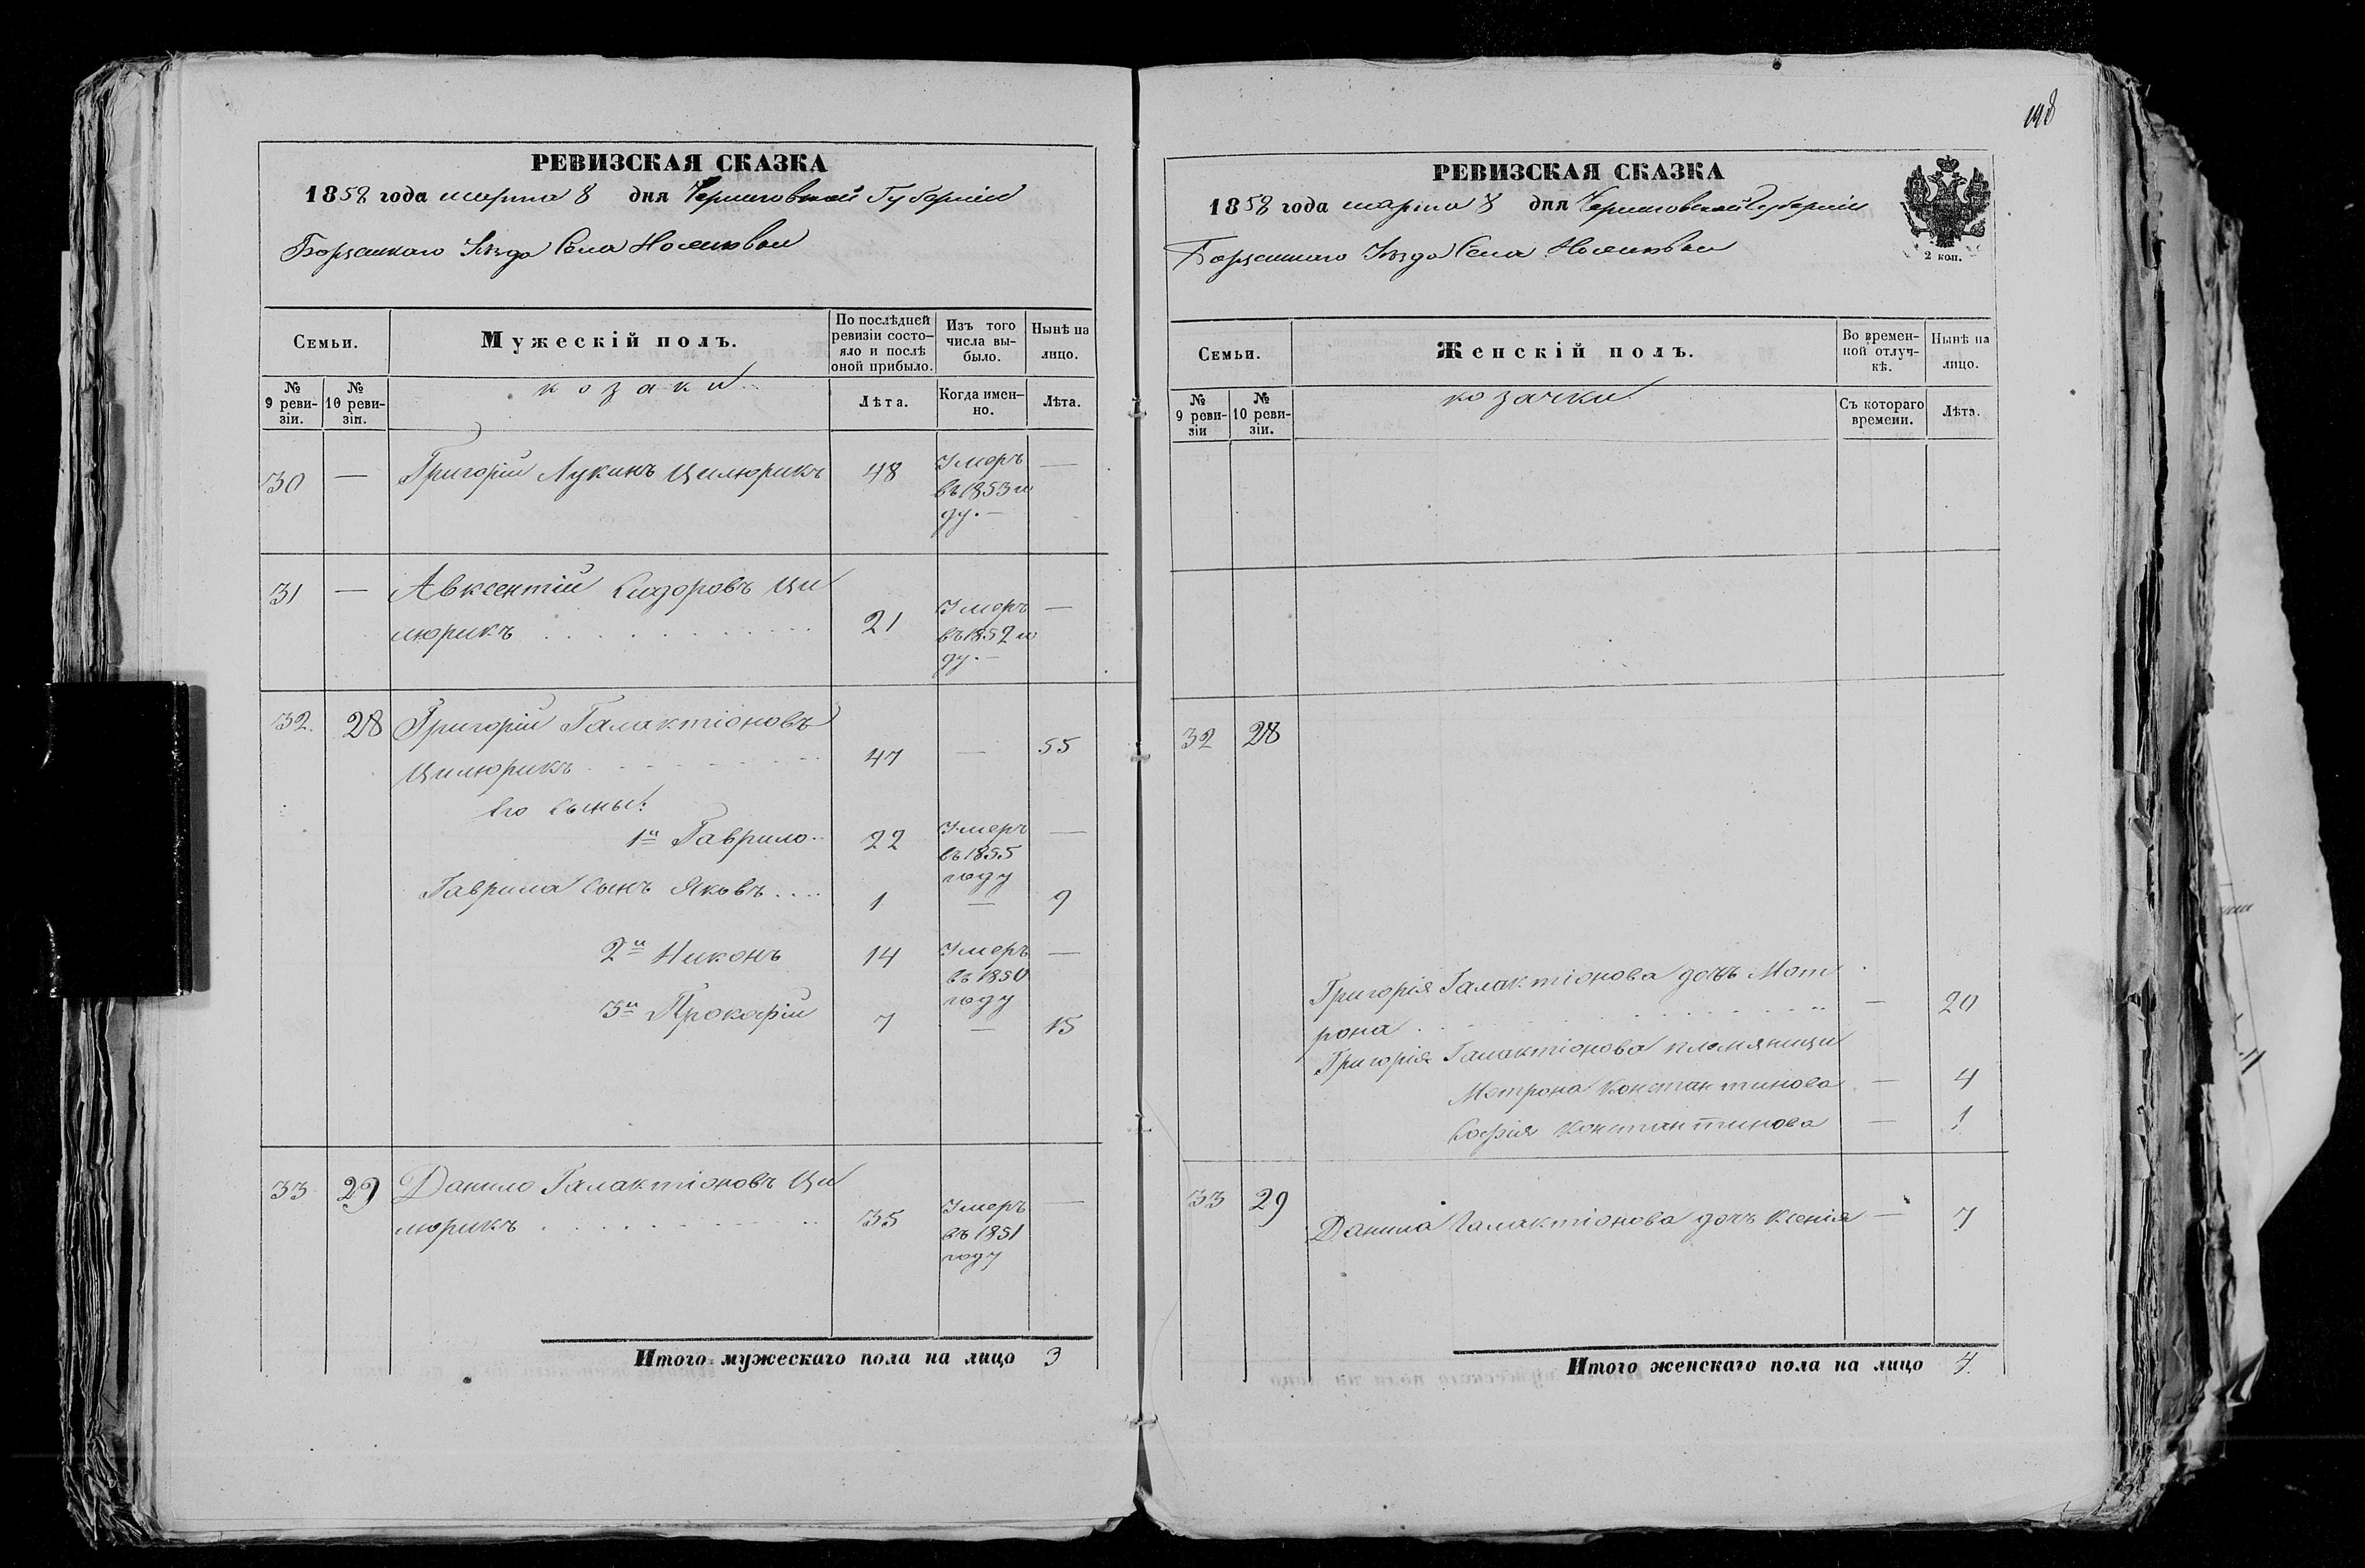 РЕВИЗСКАЯ СКАЗКА
1858 года марта 8 дня Черниговской Губерніи
Борзенского Уѣзда Села Носелювки
Семьи.
Мужескій полъ.
По послѣдней ревизіи состояло и послѣ оной прибыло.
Изъ того числа выбыло.
Нынѣ на лицо.
№ 9 ревизіи.
№ 10 ревизіи.
козаки
Лѣта.
Когда именно.
Лѣта.
30 — Григорій Лукинъ Цилюрикъ 48 Умеръ въ 1853 году. — —
31 — Авксентій Сидоровъ Ци
люрикъ 21 Умеръ въ 1852 году. — —
32. 28 Григорій Галактіоновъ
Цилюрикъ 47 — 55
Его сыны:
1й Гаврило 22 Умеръ въ 1855 году —
Гаврила сынъ Яковъ 1 — 9
2й Никонъ 14 Умеръ въ 1850 году —
3й Прокофій 7 — 15
33 29 Данило Галактіоновъ Ци
люрикъ 35 Умеръ въ 1851 году —
Итого мужескаго пола на лицо 3
118
РЕВИЗСКАЯ СКАЗКА
1858 года марта 8 дня Черниговской Губерніи
Борзенского Уѣзда Села
2 коп.
Семьи.
Женскій полъ.
Во временной отлучкѣ.
Нынѣ на лицо.
№ 9 ревизіи
№ 10 ревизіи.
козачки
Съ котораго времени.
Лѣта.
32 28
Григорія Галактіонова дочь Мот
рона — 20
Григорія Галактіонова племяници
Мотрона Константинова — 4
Софія Константинова — 1
33 29
Данила Галактіонова дочь Ксенія — 7
Итого женскаго пола на лицо 4.